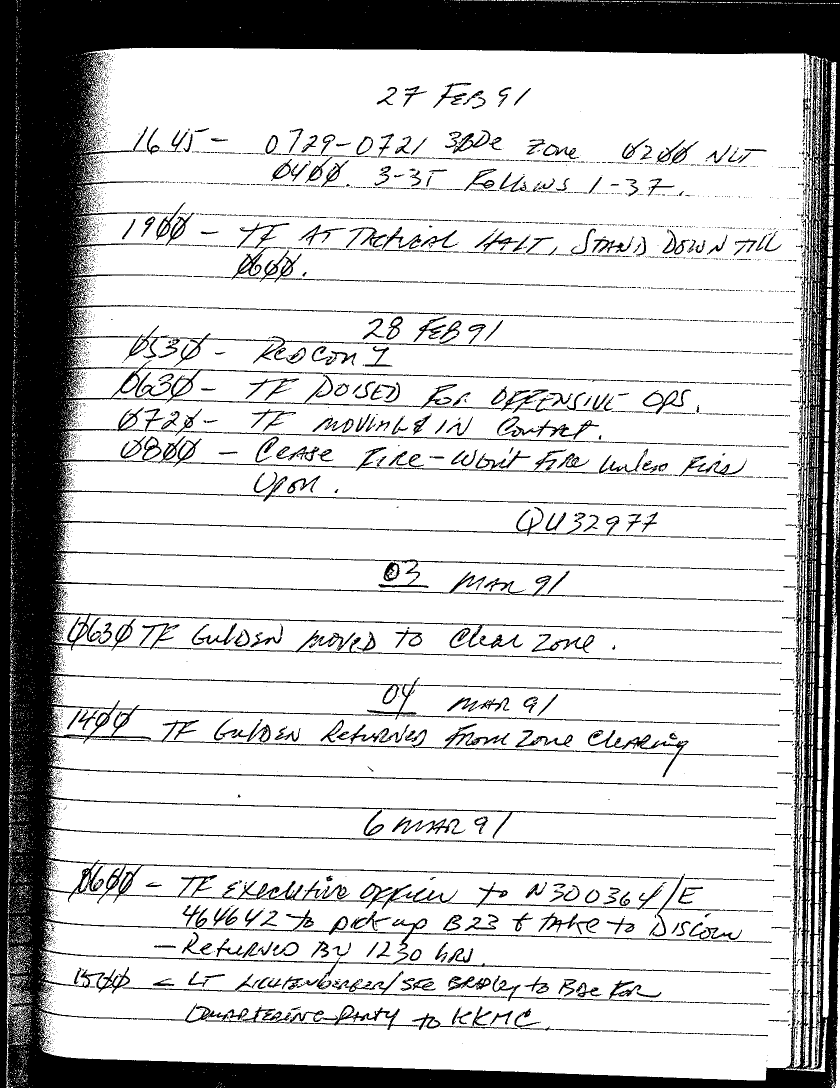 27 FEB 91
1645 - 0729-0721 3BDe Zone 0200 NLT
0400. 3-35 Follows 1-37.
1900 - TF AT TACTICAL HALT, STAND DOWN TILL
0600.
28 FEB 91
0530 - REDCON 1
0630 - TF POISED FOR OFFENSIVE OPS.
0720 - TF MOVING & IN Contact.
0800 - CEASE FIRE - Won't FIRE unless Fired
Upon.
QU32977
03 MAR 91
0630 TF GulDEN moved to Clear Zone.
04 MAR 91
1400 TF GulDEN Returned From Zone Clearing
6 MAR 91
0600 - TF Executive officer to N300364/E
464642 to pick up B23 & TAKE to Discom
- Returned By 1230 hrs.
1500 - LT LICHTENBERGER/SFC BRADLEY to BDE FOR
QUARTERING PARTY to KKMC.